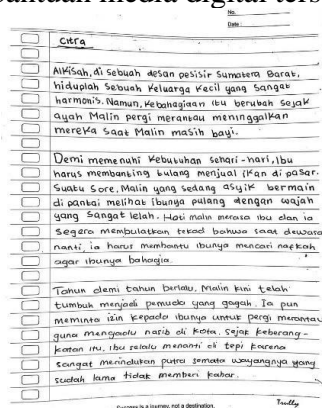 bantuan media digital ters
No.
Date
Citra
Alkisah, di sebuah desan pesisir Sumatera Barat,
hiduplah Sebuah Keluarga Kecil yang Sangat
harmonis. Namun, kebahagiaan itu berubah sejak
ayah Malin pergi merantau meninggalkan
mereka saat Malin masih bayi.
Demi memenuhi Kebutuhan sehari-hari, Ibu
harus membanting tulang menjual ikan di pasar.
Suatu Sore, Malin yang sedang asyik bermain
di pantai melihat ibunya pulang dengan wajah
yang Sangat lelah. Hati malin merasa Ibu dan ia
Segera membulatkan tekad bahwa saat dewasa
nanti, ia harus membantu Ibunya mencari nafkah
agar Ibunya bahagia.
Tahun demi tahun berlalu, Malin kini telah
tumbuh menjadi pemuda yang gagah. Ia pun
meminta izin kepada ibunya untuk pergi merantau
guna mengadu nasib di kota, sejak keberang-
katan itu, Ibu selalu menanti di tepi karena
sangat merindukan putra semata wayangnya yang
sudah lama tidak memberi kabar.
Success is a journey, not a destination.